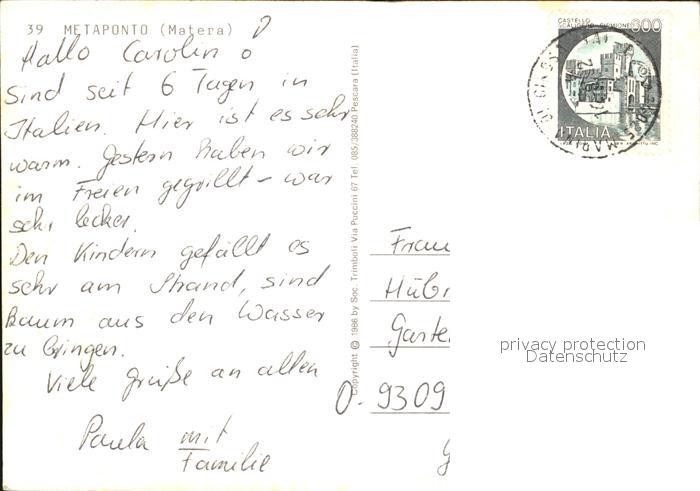 39 METAPONTO (Matera)
Hallo Carolin o
Sind seit 6 Tagen in
Italien. Hier ist es sehr
warm. Gestern haben wir
im Freien gegrillt - war
sehr lecker.
Den Kindern gefällt es
sehr am Strand, sind
kaum aus den Wasser
zu bringen.
Viele Grüße an allen
Paula mit
Familie
Copyright © 1986 by Soc. Trimboli Via Puccini 67 Tel. 085/388240 Pescara (Italia)
CASTELLO
SCALIGERO - SIRMIONE
800
ITALIA
MARINA DI GINOSA
Frau
Hübn
Garte
O-9309
G
privacy protection
Datenschutz